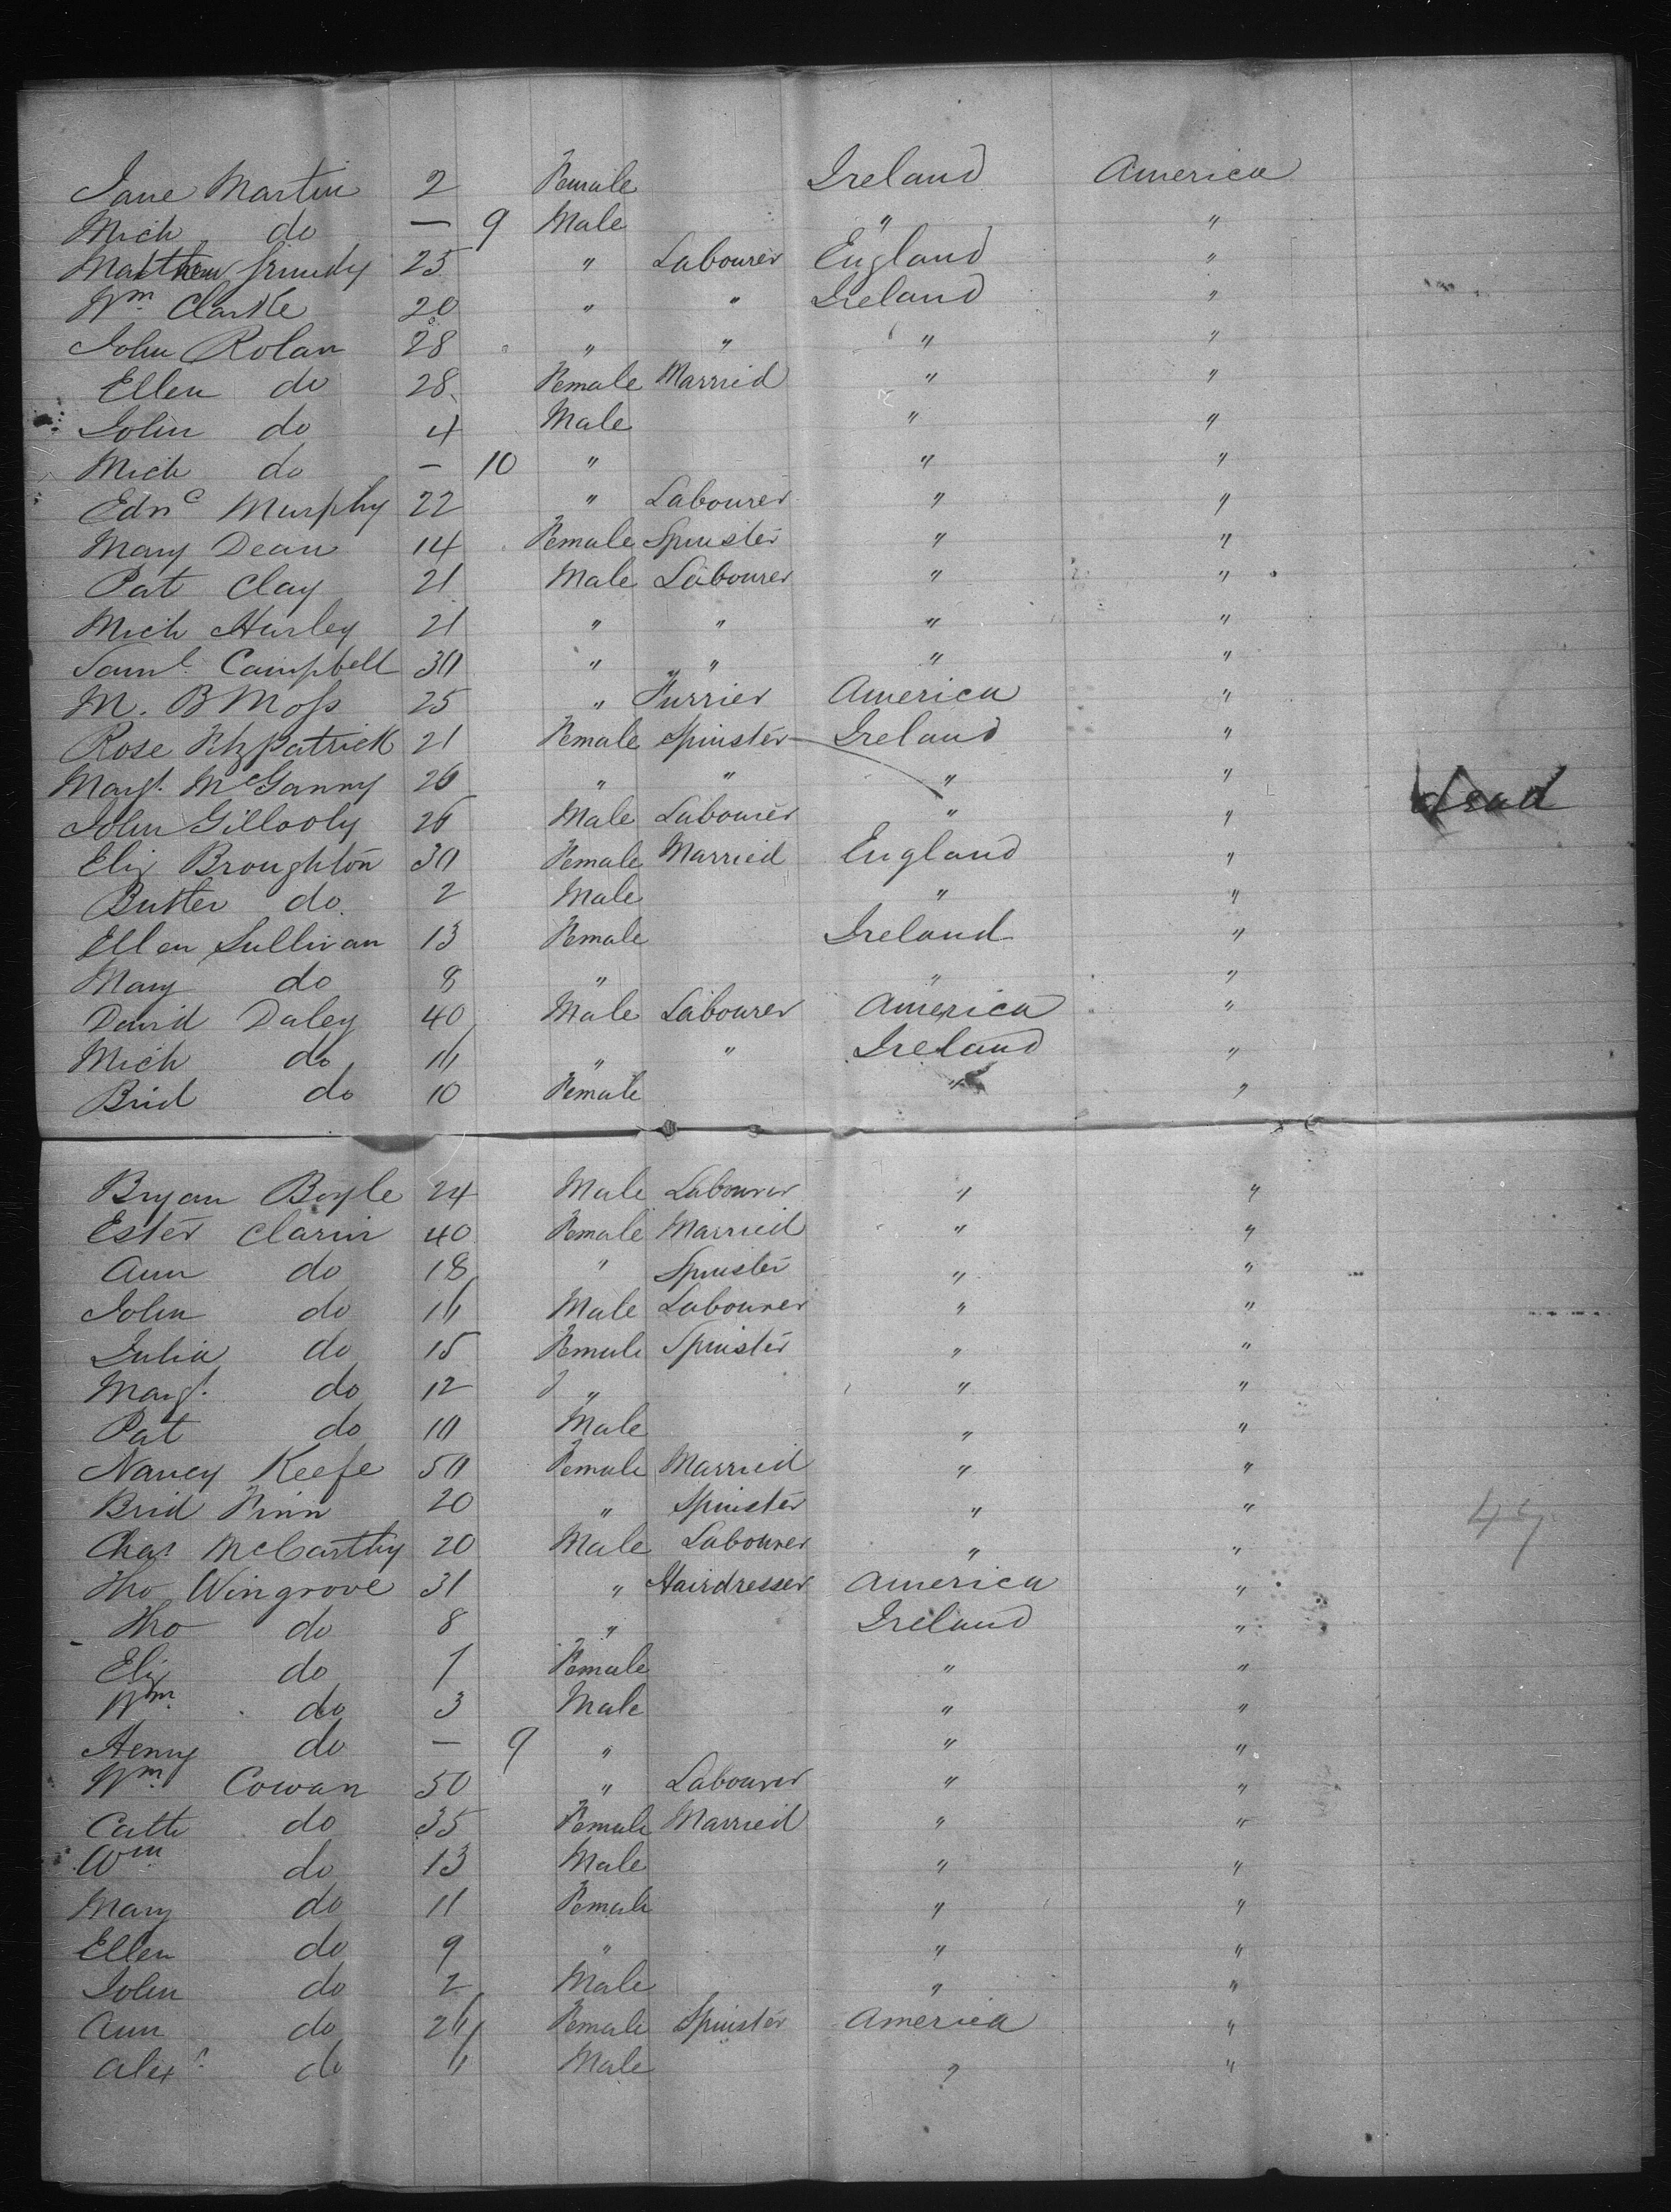 Jane Martin 2 Female Ireland America
Mich do — 9 Male " "
Matthew Grundy 25 " Labourer England "
Wm Clarke 20 " " Ireland "
John Rolan 28 " " " "
Ellen do 28 Female Married " "
John do 4 Male " "
Mich do — 10 " " "
Ednc Murphy 22 " Labourer " "
Mary Dean 14 Female Spinster " "
Pat Clay 21 Male Labourer " "
Mich Hurley 21 " " " "
Saml Campbell 30 " " " "
M. B Moss 25 " Furrier America "
Rose Fitzpatrick 21 Female Spinster Ireland "
Margt. McGanny 26 " " " "
John Gillooly 26 Male Labourer " " dead
Eliz Broughton 30 Female Married England "
Butler do 2 Male " "
Ellen Sullivan 13 Female Ireland "
Mary do 8 " " "
David Daley 40 Male Labourer America "
Mich do 16 " " Ireland "
Brid do 10 Female " "
Bryan Boyle 24 Male Labourer " "
Ester Clarin 40 Female Married " "
Ann do 18 " Spinster " "
John do 16 Male Labourer " "
Julia do 15 Female Spinster " "
Margt. do 12 " " "
Pat do 10 Male " "
Nancy Keefe 50 Female Married " "
Brid Finn 20 " Spinster " " 47
Chas McCarthy 20 Male Labourer " "
Tho Wingrove 31 " Hairdresser America "
Tho do 8 " Ireland "
Eliz do 7 Female " "
Wm. do 3 Male " "
Henry do — 9 " " "
Wm. Cowan 50 " Labourer " "
Cath do 35 Female Married " "
Wm do 13 Male " "
Mary do 11 Female " "
Ellen do 9 " " "
John do 2 Male " "
Ann do 26 Female Spinster America "
Alexr do 6 Male " "